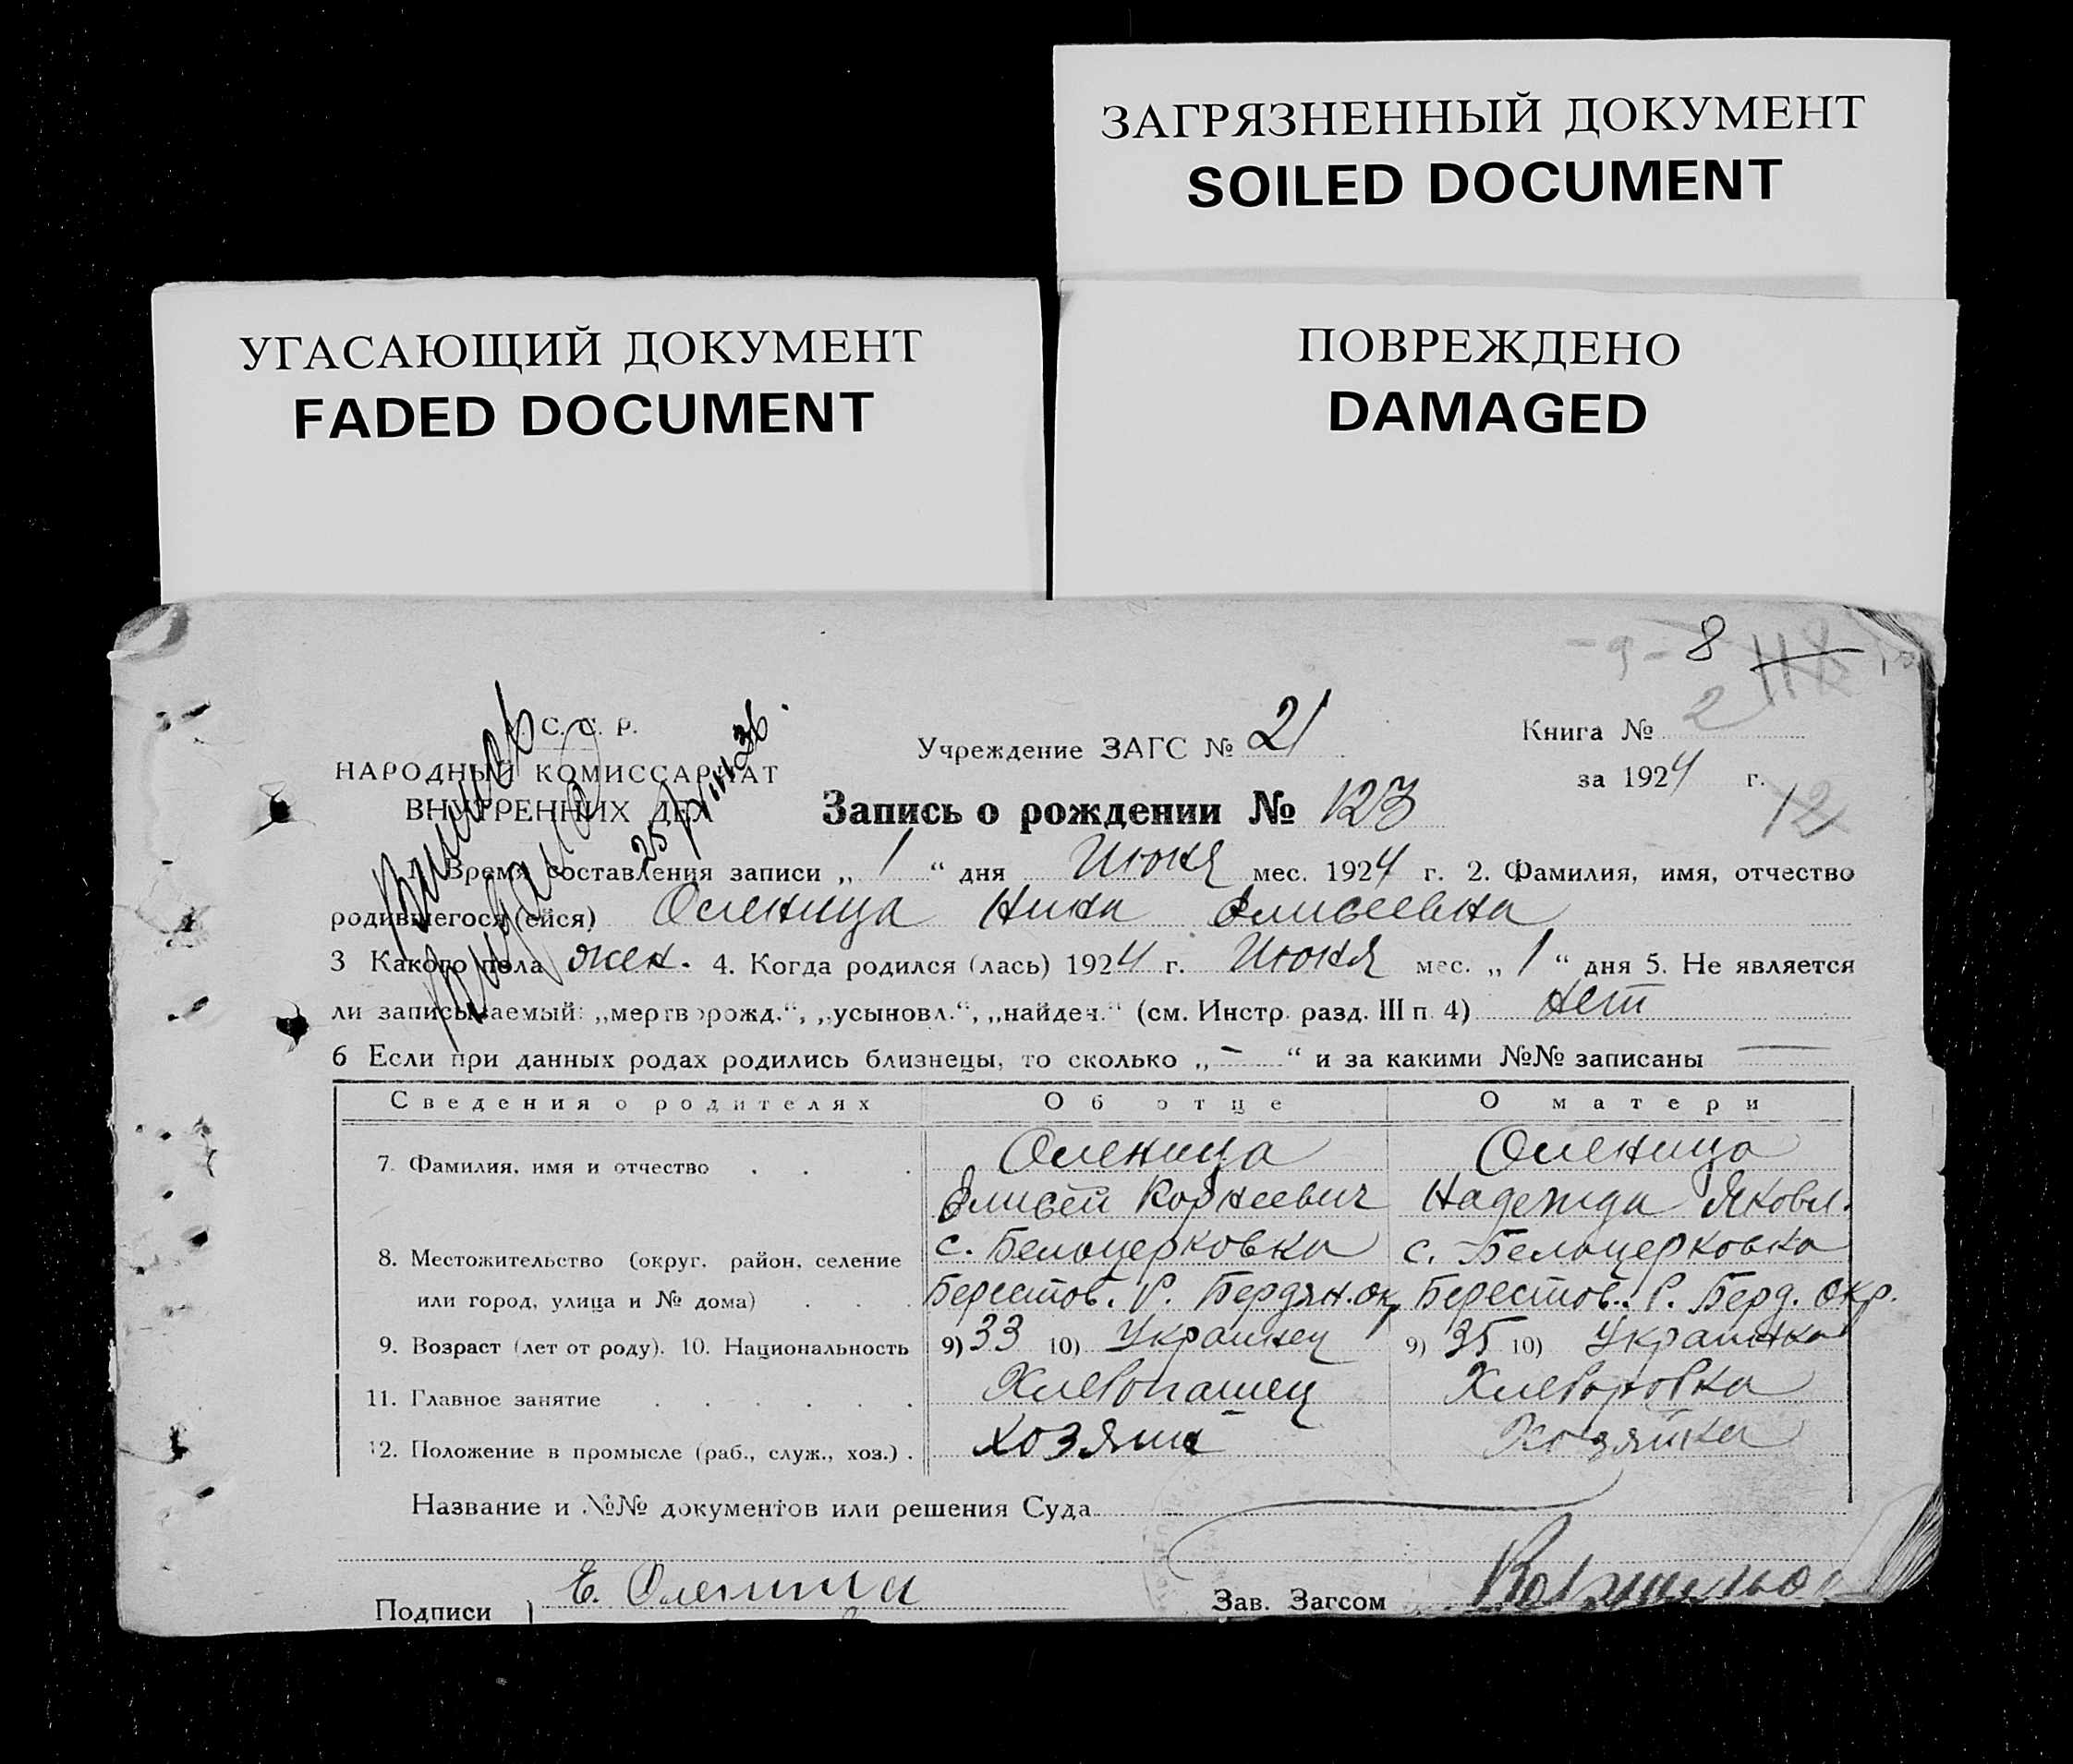 ЗАГРЯЗНЕННЫЙ ДОКУМЕНТ
SOILED DOCUMENT
УГАСАЮЩИЙ ДОКУМЕНТ
FADED DOCUMENT
ПОВРЕЖДЕНО
DAMAGED
- 9 - 8
С. С. Р.
НАРОДНЫЙ КОМИССАРИАТ
ВНУТРЕННИХ ДЕЛ
Учреждение ЗАГС № 21
Книга № 2
за 1924 г.
12
Запись о рождении № 123
1. Время составления записи „ 1 “ дня Июня мес. 1924 г. 2. Фамилия, имя, отчество
родившегося (ейся) Оленица Нина Елисеевна
3 Какого пола жен. 4. Когда родился (лась) 1924 г. Июня мес. „ 1 “ дня 5. Не является
ли записываемый: „мертворожд.“, „усыновл.“, „найден.“ (см. Инстр. разд. III п. 4) нет
6 Если при данных родах родились близнецы, то сколько „ - “ и за какими №№ записаны —
Сведения о родителях Об отце О матери
7. Фамилия, имя и отчество Оленица Оленица
Елисей Корнеевич Надежда Яковл.
8. Местожительство (округ, район, селение с. Белоцерковка с. Белоцерковка
или город, улица и № дома) Берестов. Р. Бердян. ок, Берестов. Р. Берд. Окр.
9. Возраст (лет от роду). 10. Национальность 9) 33 10) Украинец 9) 35 10) Украинка
11. Главное занятие Хлебопашец Хлеборобка
12. Положение в промысле (раб., служ., хоз.) Хозяин Хозяйка
Название и №№ документов или решения Суда
Подписи Е. Оленица
Зав. Загсом